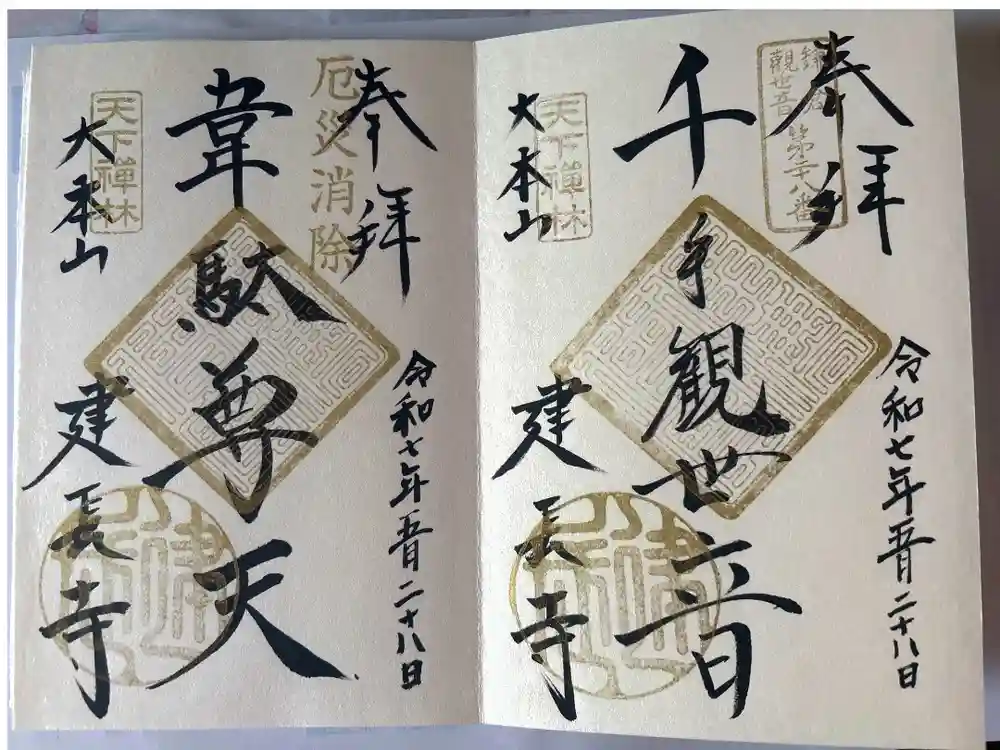 奉拝
鎌倉
觀世音
第二十八番
千手觀世音
令和七年五月二十八日
天下禅林
大本山
建長寺
奉拝
厄災消除
韋駄尊天
令和七年五月二十八日
天下禅林
大本山
建長寺